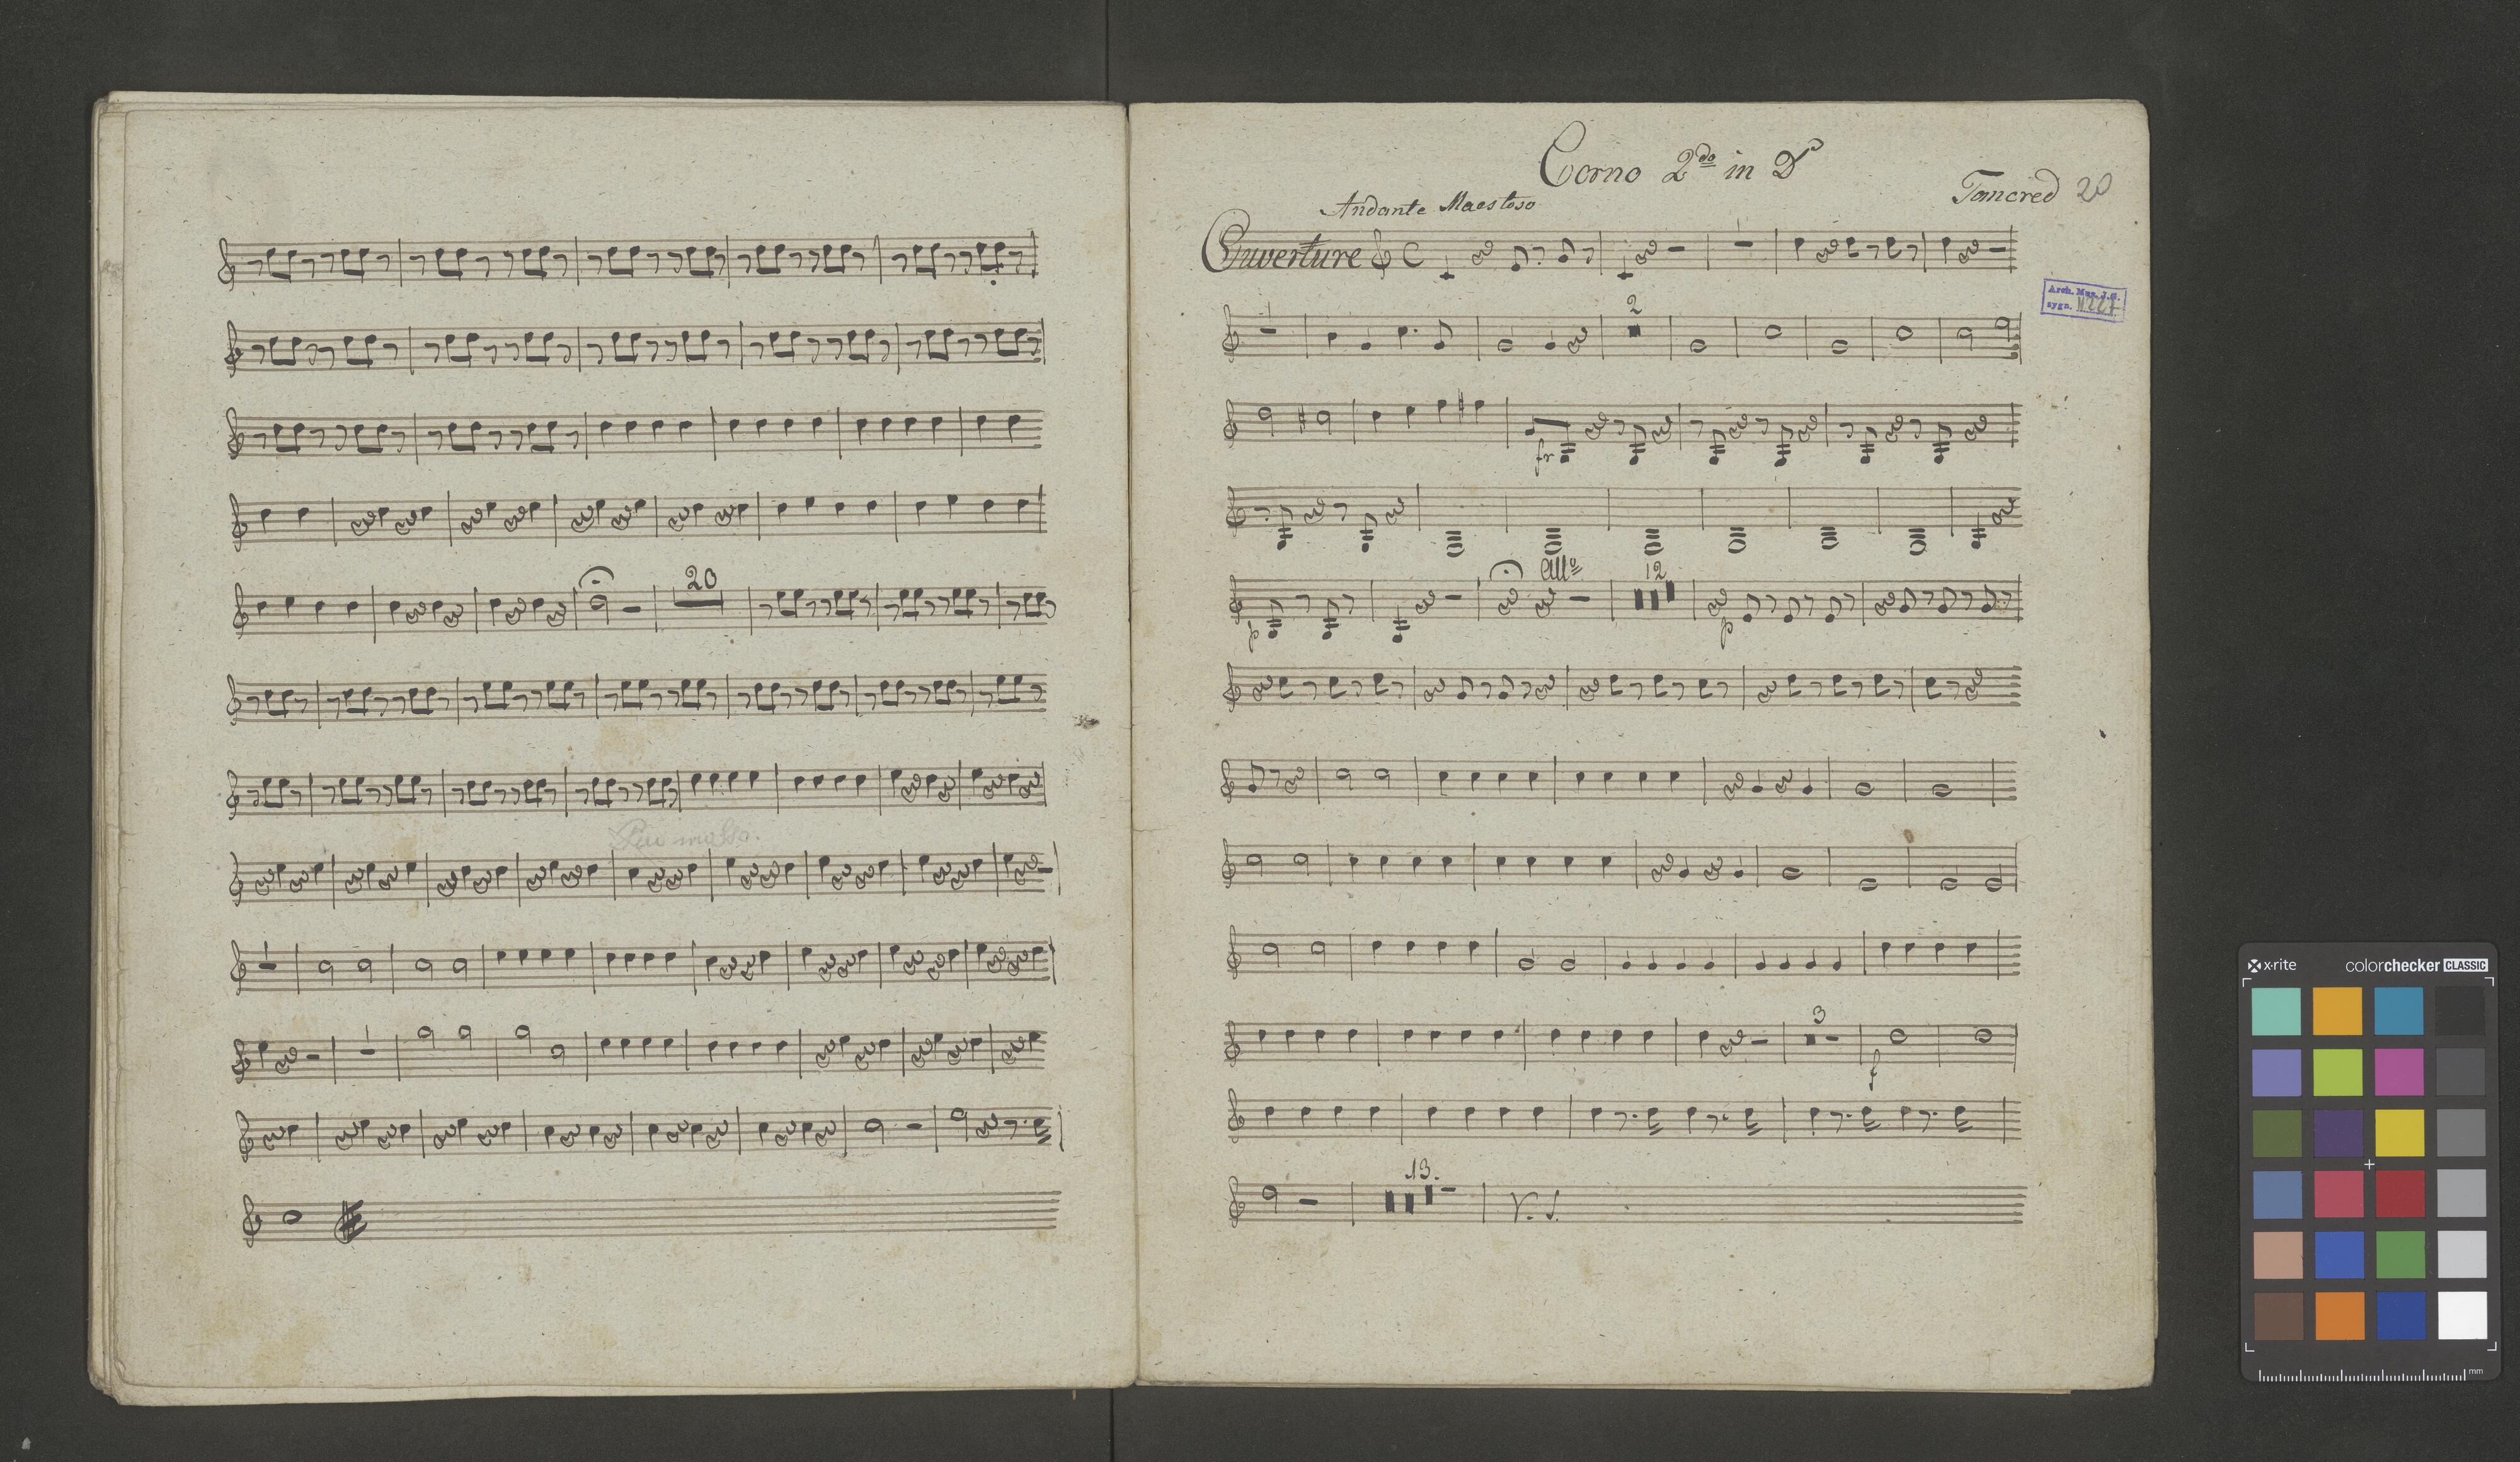 20
Piu mosso.
Corno 2do in D
Tancred 20
Andante Maestoso
Ouverture
Arch. Mus. J.G.
sygn. M 227
2
fr
Allo
12
p
p
3
f
13.
V. S.
x-rite
colorchecker CLASSIC
mm